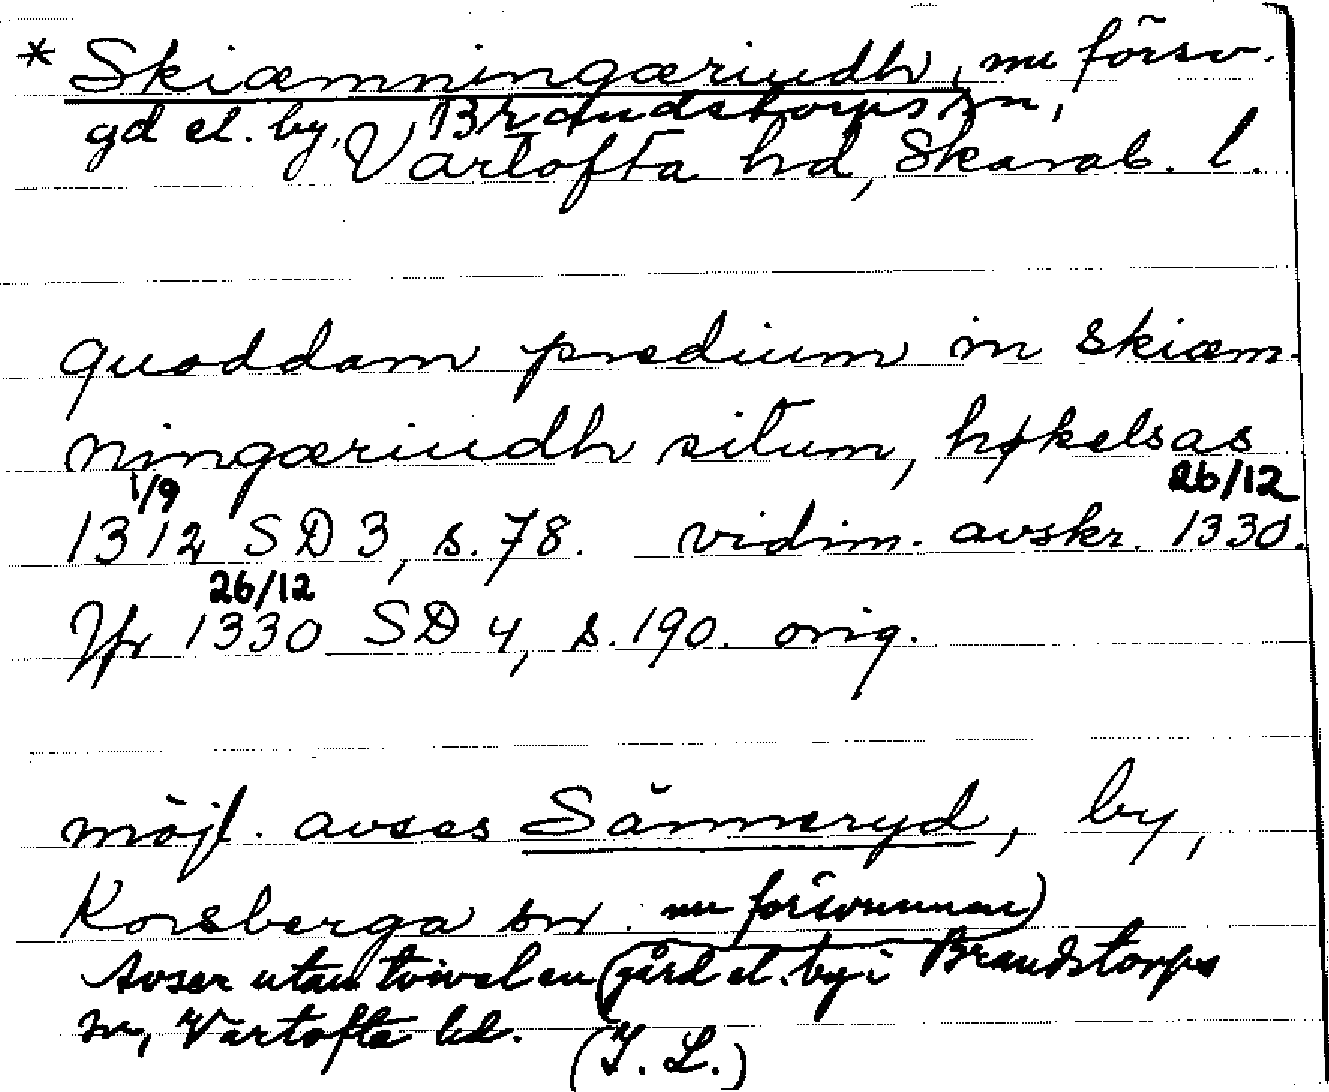 * Skiæmningæriudh, nu försv.
gd el. by, Brandstorps sn,
Vartofta hd, Skarab. l.
quoddam predium in skiæm-
ningæriudh situm, høkelsas
1/9 26/12
1312 SD 3, s. 78. vidim. avskr. 1330.
26/12
Jfr 1330 SD 4, s. 190. orig.
möjl. avses Sämmeryd, by,
Korsberga sn. nu försvunnen)
Avser utan tvivel en (gård el. by i Brandstorps
sn, Vartofta hd. (I. L.)